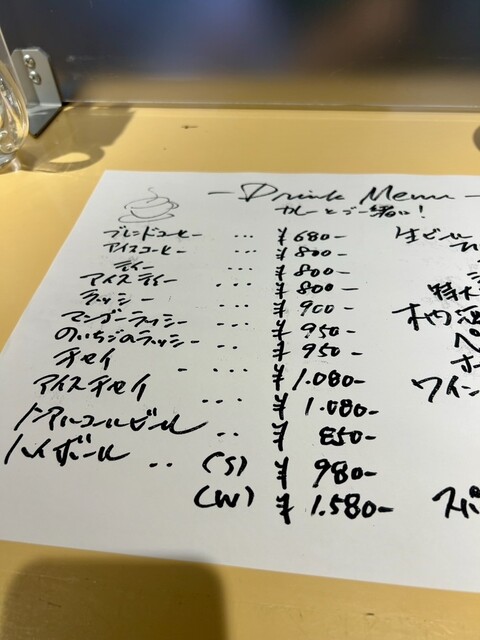 -Drink Menu-
カレーとご一緒に!
ブレンドコーヒー ... ¥680-
アイスコーヒー ... ¥800-
ティー ... ¥800-
アイスティー ... ¥800-
ラッシー ... ¥900-
マンゴーラッシー ... ¥950-
のいちごのラッシー .. ¥950-
チャイ .... ¥1.080-
アイスチャイ ... ¥1.080-
ノンアルコールビール .. ¥850-
ハイボール .. (S) ¥980-
(W) ¥1.580-
生ビール
特大
ワイン
スパ